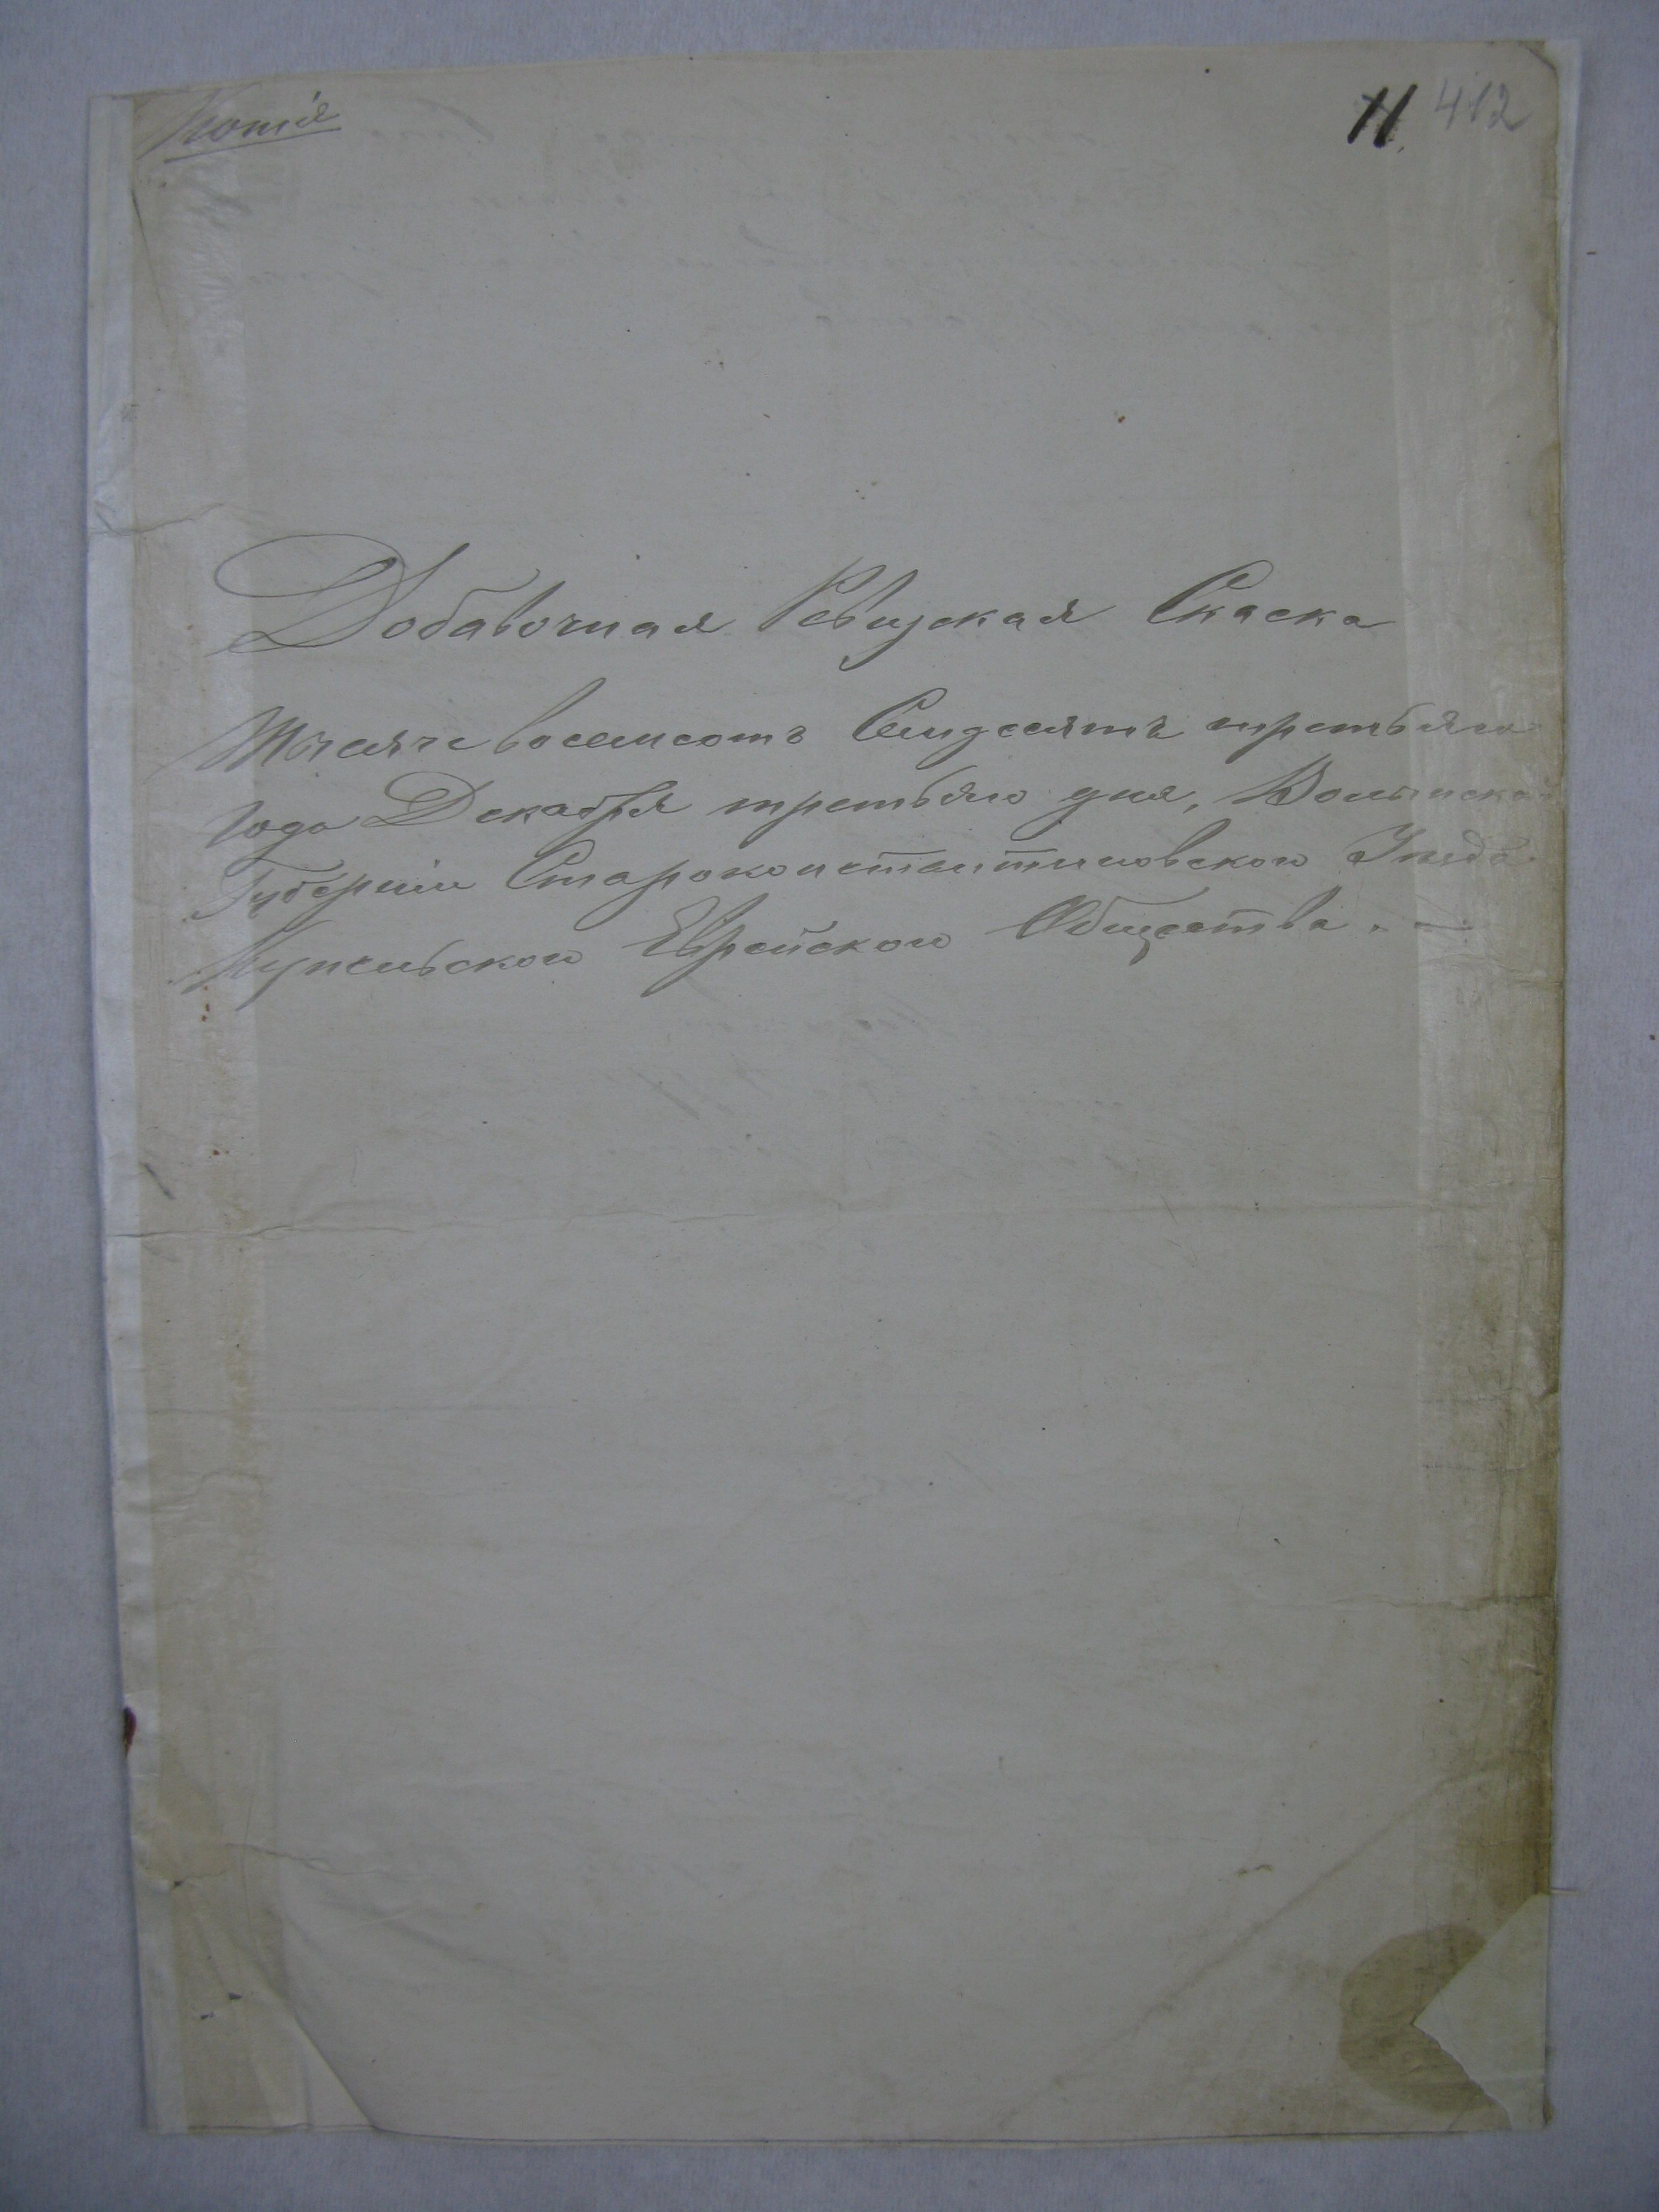 Копія
11. 412
Добавочная Ревизская Скаска
Тысяча восемсотъ Семдесятъ третьяго
года Декабря третьяго дня, Волынской
Губерніи Староконстантиновского Уѣзда
Купельского Еврейского Общества. –